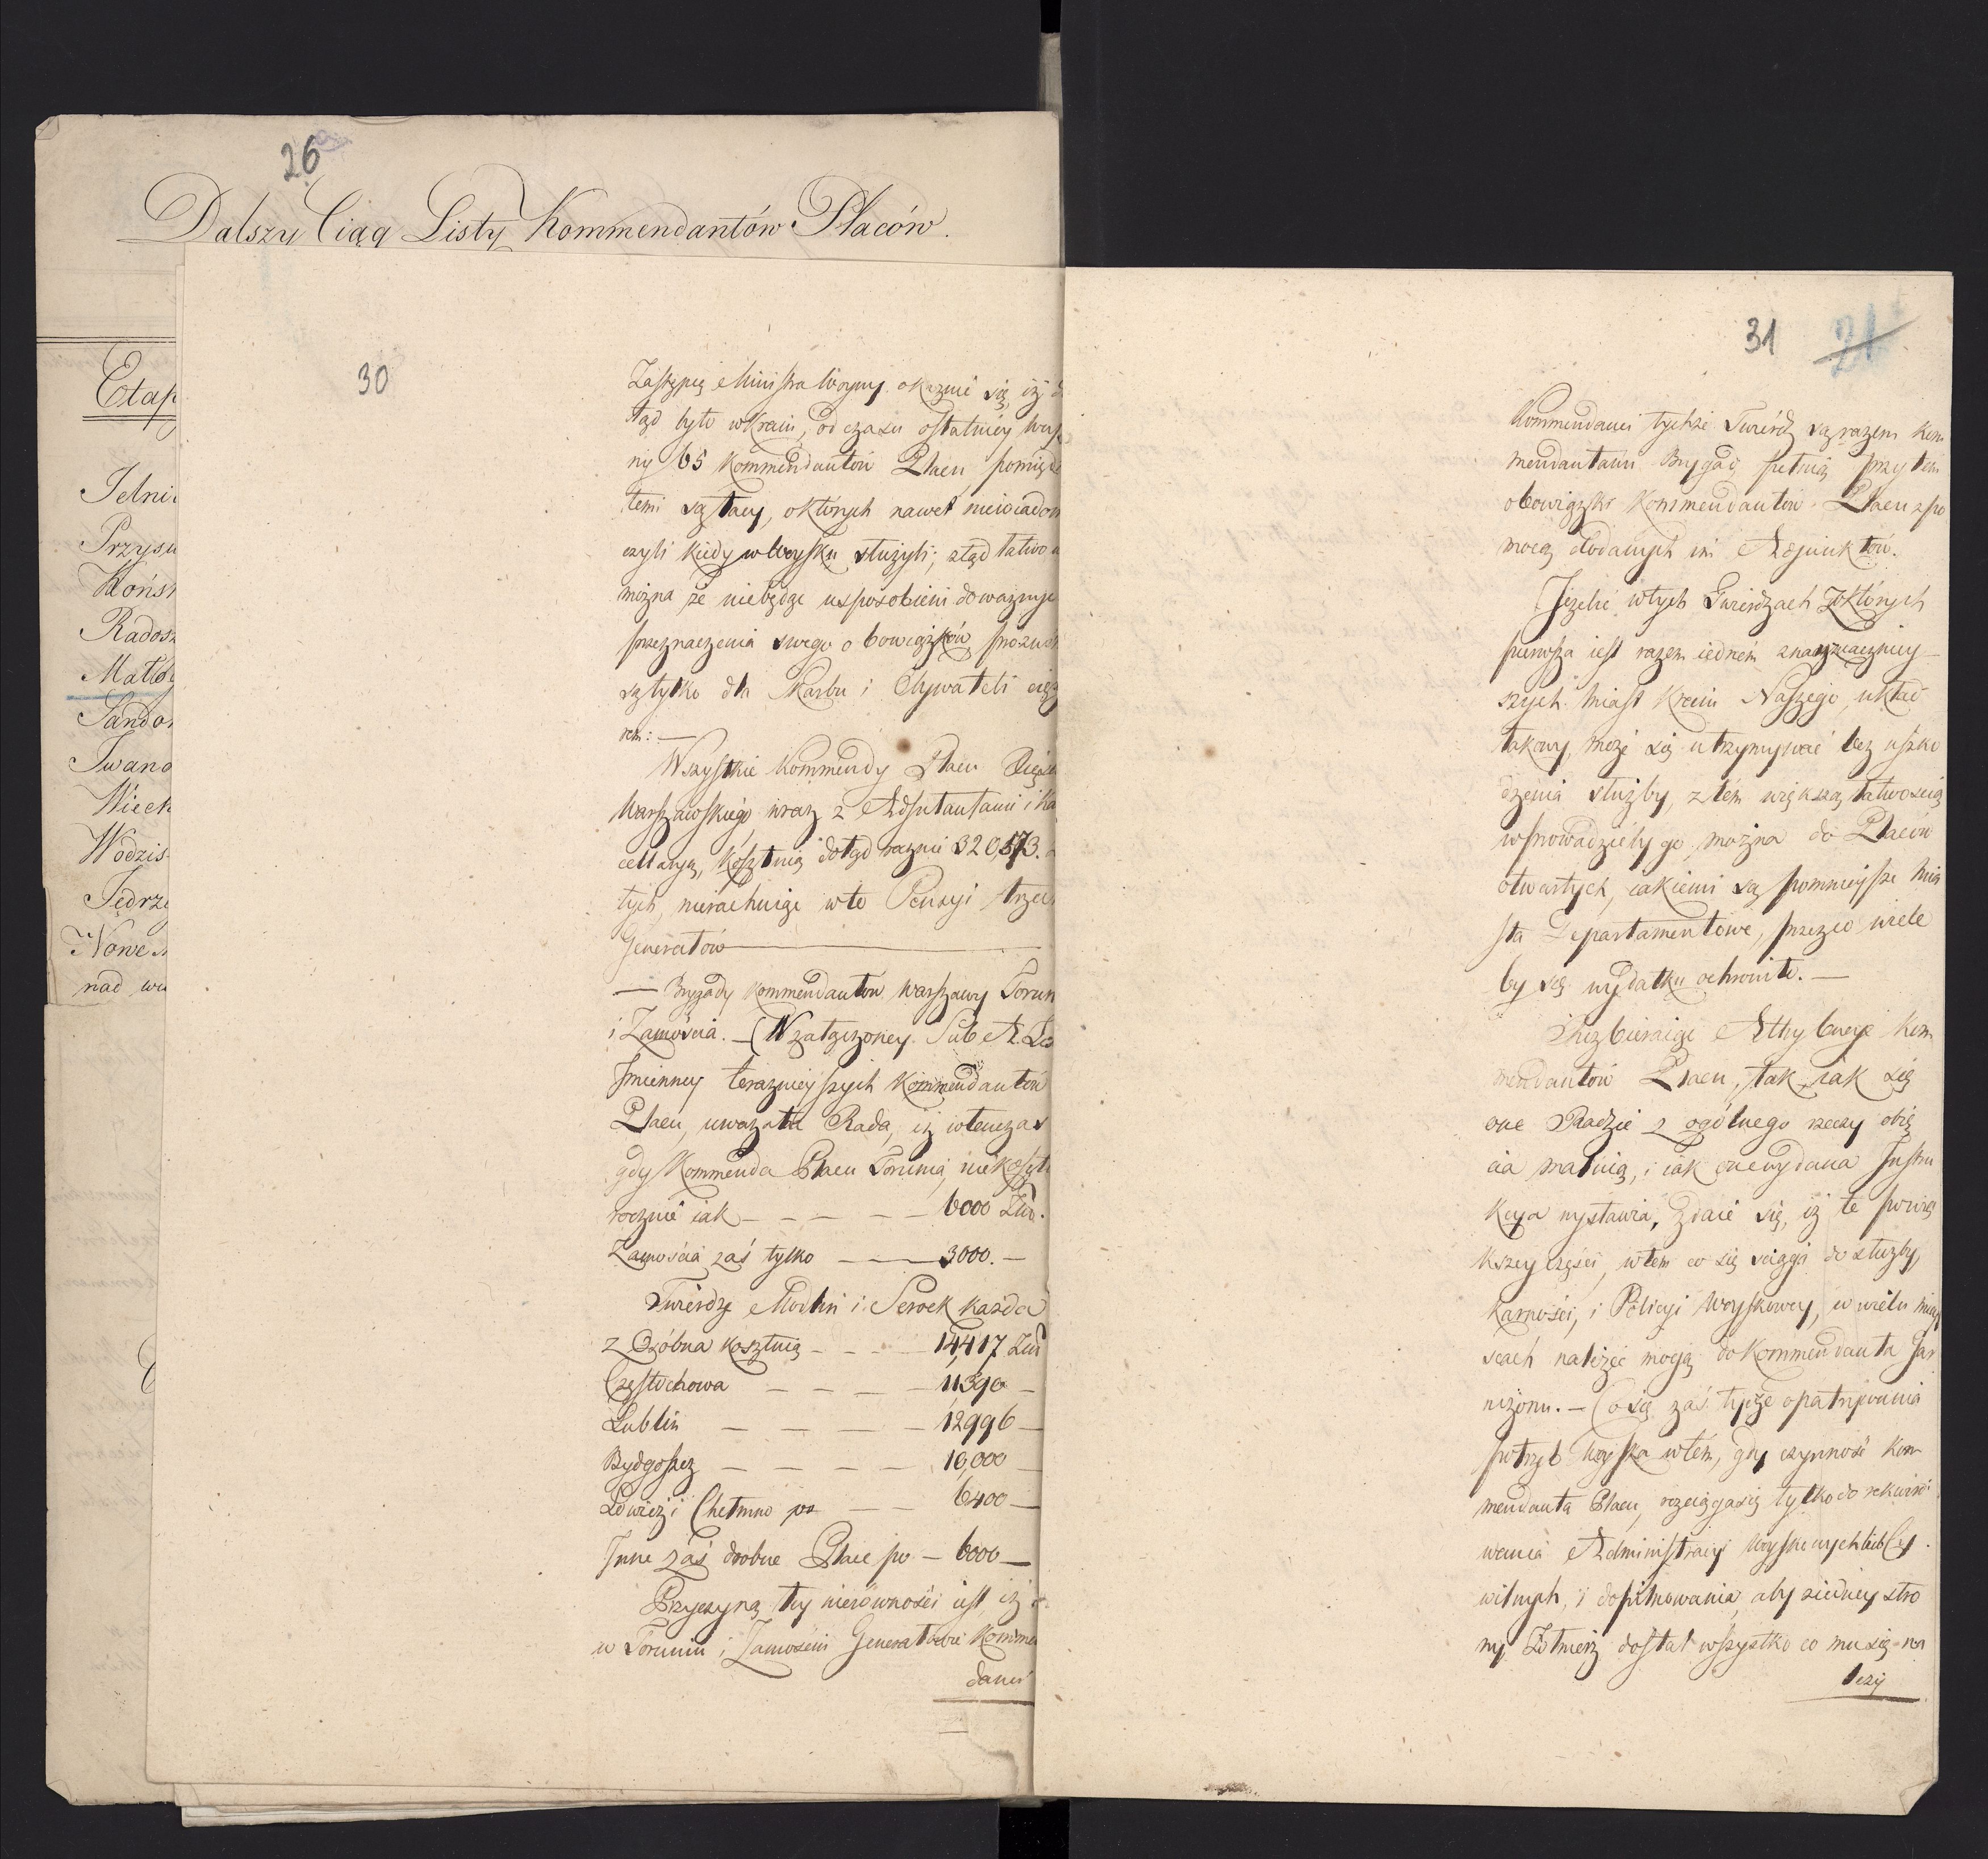 26
Dalszy Ciąg Listy Kommendantów Placów.
Etap
Jelni
Przysu
Końs
Radosz
Mało
Sando
Iwano
Wiect
Wodzis
Jędrze
Nowe
nad
30
Zastępcę Ministra Woyny okazuie się, iż
tąd było w Kraiu, od czasu ostatniey
ny 65 Kommendantów Placu, pomiędz
temi są tacy, o których nawet niewiadom
czyli kiedy w Woysku służyli; ztąd łatwo
można że niebędąc usposobieni do ważnyc
przeznaczenia swego obowiązków,
są tylko dla Skarbu i Obywateli cięża
rem: —
Wszystkie Kommendy Placu Xięstw
Warszawskiego wraz z Adjutantami i Ka
cellaryą, kosztuią dotąd rocznie 320,573.
tych, nierachuiąc w to Pensyi trzech
Generałów —
— Brygady Kommendantów Warszawy Torun
i Zamościa. — (W załączoney Sub A. Li
Imienney teraznieyszych Kommendantów
Placu, uważała Rada, iż wtenczas
gdy Kommenda Placu Torunia, niekoszt
rocznie iak — — — — 6000 Złł.
Zamościa zaś tylko — — 3000. —
Twierdze Modlin i Serock każda
z Osóbna kosztuią — — — 14,417 Złł
Częstochowa — — — — 11390 —
Lublin — — — — 12996 —
Bydgoszcz — — — — 10,000 —
Łowicz i Chełmno po — — 6400 —
Inne zaś drobne Place po — 6000 —
Przyczyną tey nierówności iest, iż
w Toruniu i Zamościu Generałowie Komme
danci
31
21
Kommendanci tychże Twierdz są razem Kom
mendantami Brygad, pełnią przytem
obowiązki Kommendantów Placu z po
mocą dodanych im Adjunktów.
Jeżeli w tych Twierdzach z których
pierwsza iest razem iedném z naznaczniey
szych miast Kraiu Naszego, układ
takowy, może się utrzymywać bez uszko
dzenia służby, z tém większą łatwością
wprowadziéby go można do Placów
otwartych, iakiemi są pomnieysze Mia
sta Departamentowe, przezco wiele
by się wydatku ochroniło. —
Attrybucye Kom
mendantów Placu, tak iak się
one Radzie z ogólnego rzeczy obię
cia maluią, i iak one wydana Instru
kcya wystawia, zdaie się, iż te powię
kszey części, w tem co się sciąga do służby,
karności, i Policyi Woyskowey, w wielu miey
scach należéć mogą do Kommendanta Gar
nizonu. — Co się zaś tycze opatrywania
potrzeb Woyska w tém, gdy czynność Kom
mendanta Placu, rozciąga się tylko do rekwiro
wania Administracyi Woyskowych lub Cy
wilnych, i dopilnowania, aby z iedney stro
ny Żołnierz dostał wszystko co mu się na
leży